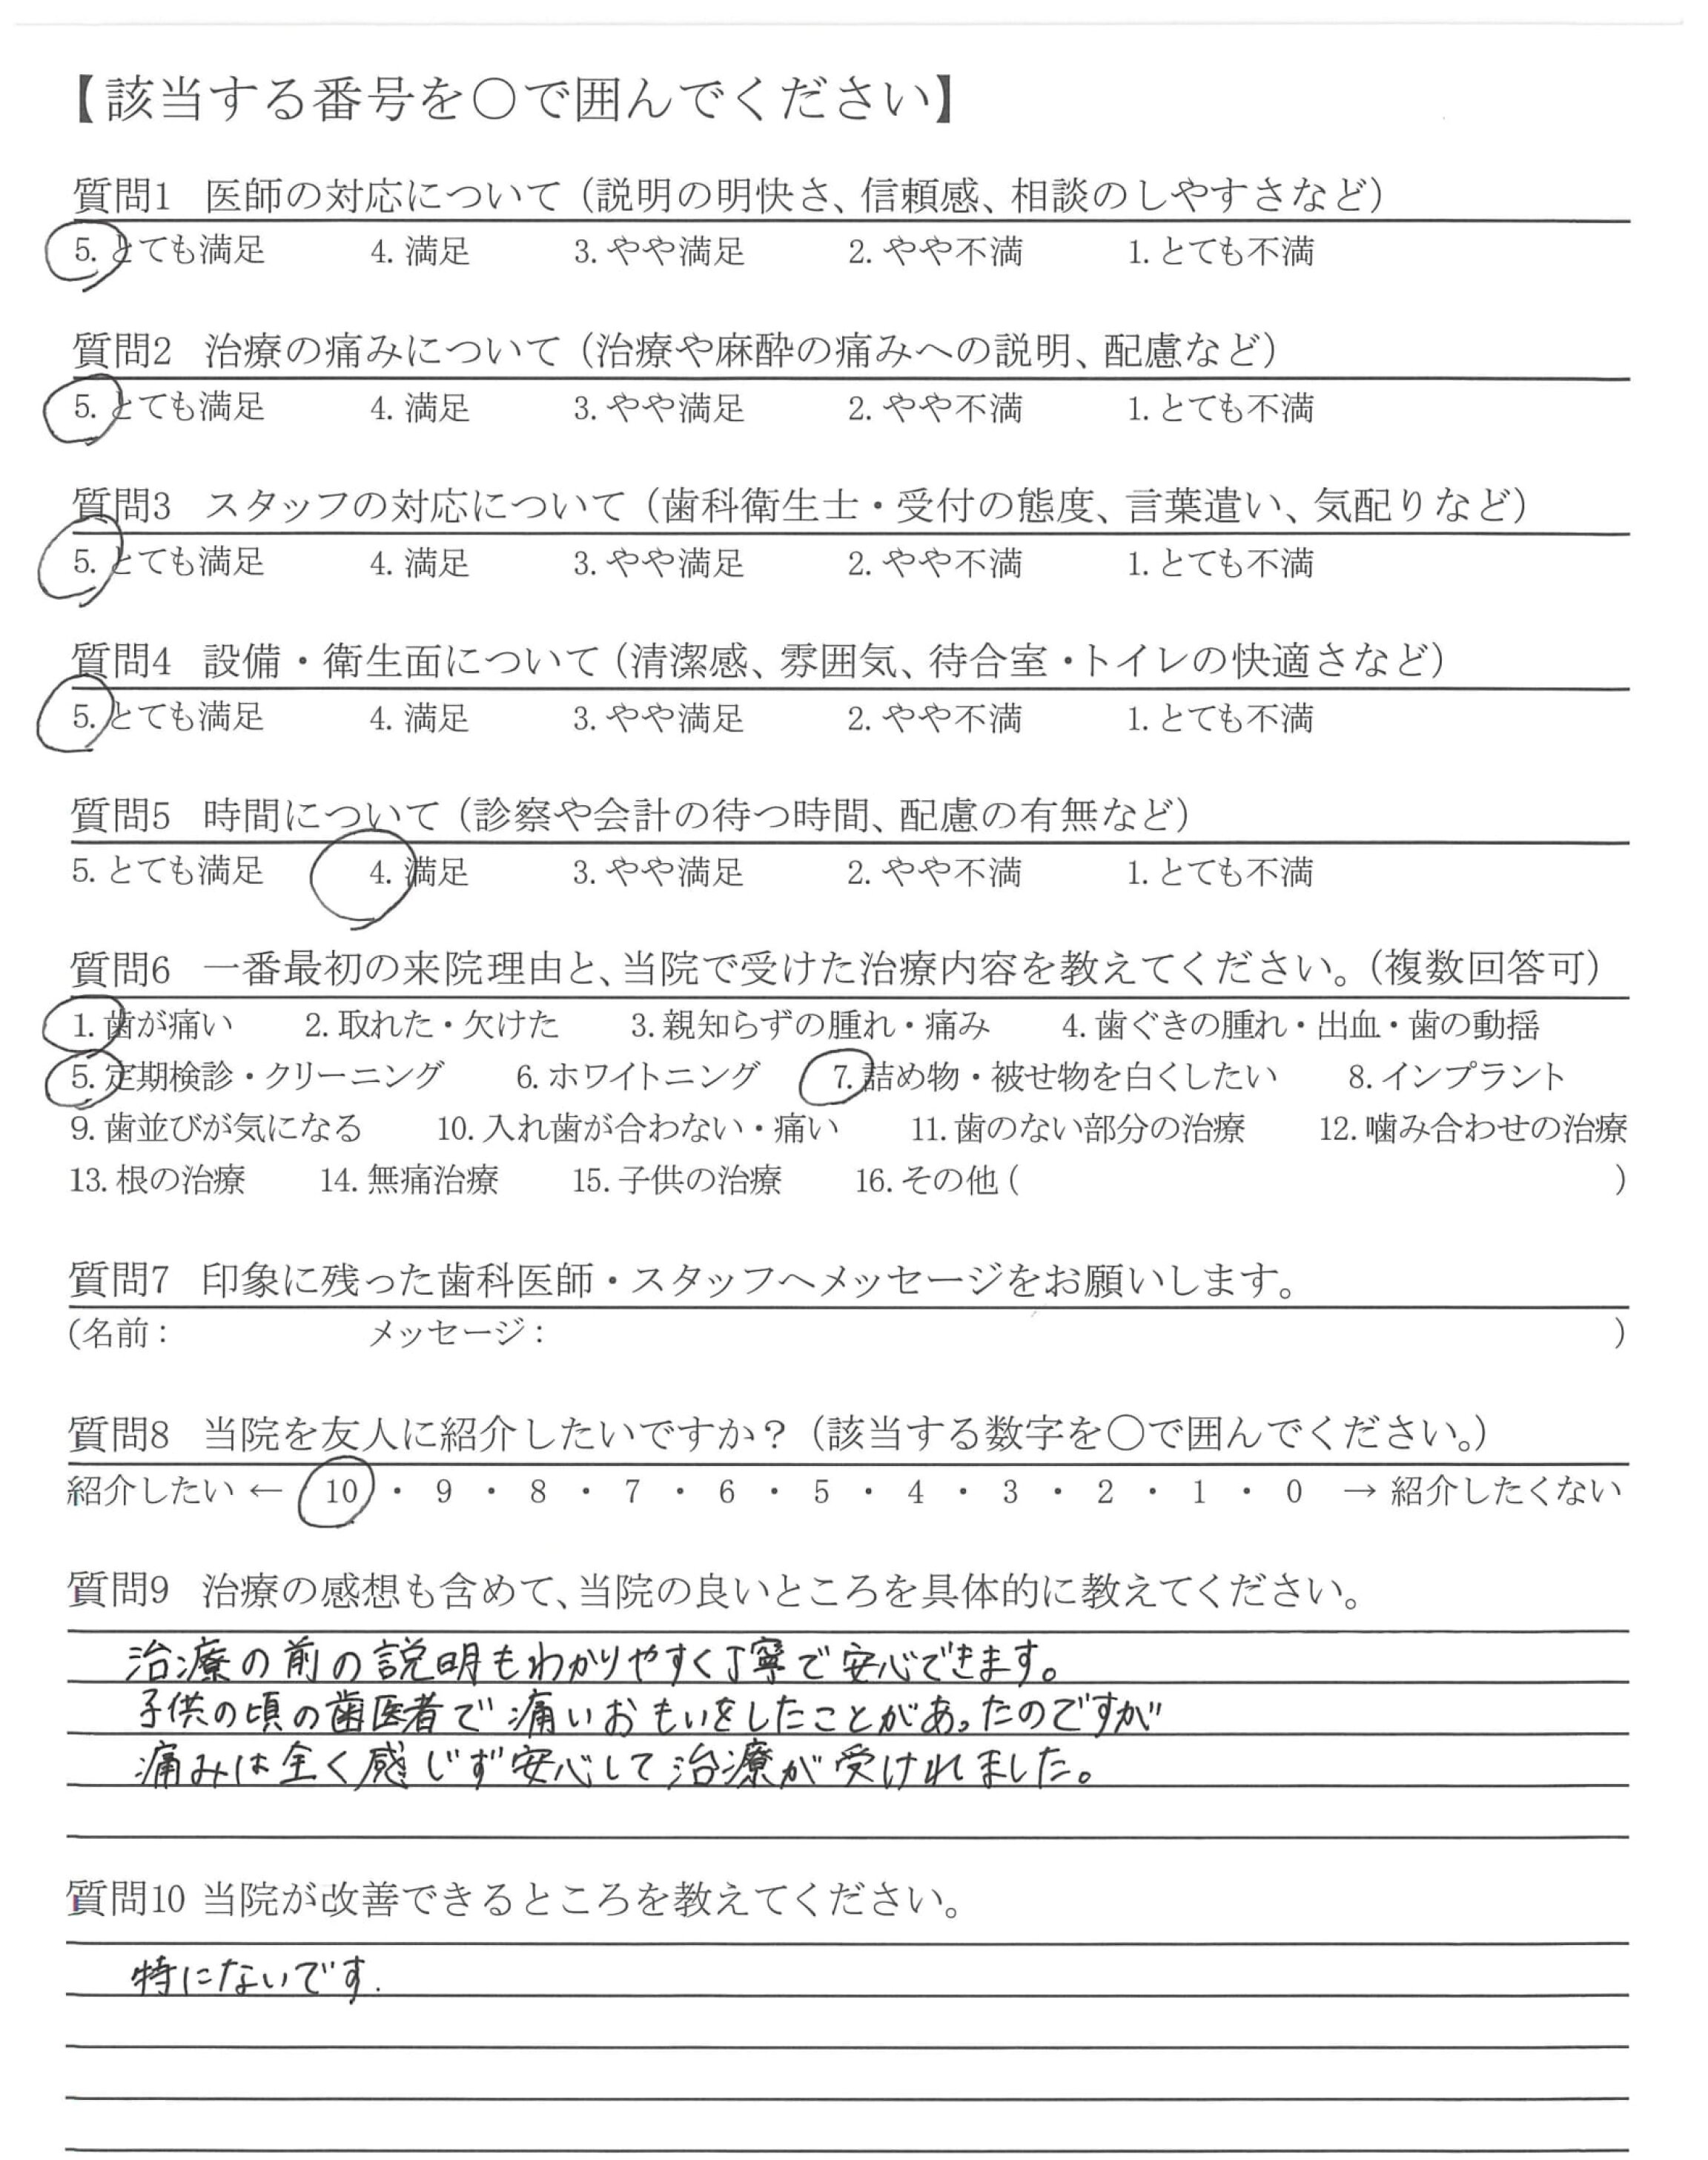 【該当する番号を〇で囲んでください】
質問1 医師の対応について（説明の明快さ、信頼感、相談のしやすさなど）
5. とても満足 4. 満足 3. やや満足 2. やや不満 1. とても不満
質問2 治療の痛みについて（治療や麻酔の痛みへの説明、配慮など）
5. とても満足 4. 満足 3. やや満足 2. やや不満 1. とても不満
質問3 スタッフの対応について（歯科衛生士・受付の態度、言葉遣い、気配りなど）
5. とても満足 4. 満足 3. やや満足 2. やや不満 1. とても不満
質問4 設備・衛生面について（清潔感、雰囲気、待合室・トイレの快適さなど）
5. とても満足 4. 満足 3. やや満足 2. やや不満 1. とても不満
質問5 時間について（診察や会計の待つ時間、配慮の有無など）
5. とても満足 4. 満足 3. やや満足 2. やや不満 1. とても不満
質問6 一番最初の来院理由と、当院で受けた治療内容を教えてください。（複数回答可）
1. 歯が痛い 2. 取れた・欠けた 3. 親知らずの腫れ・痛み 4. 歯ぐきの腫れ・出血・歯の動揺
5. 定期検診・クリーニング 6. ホワイトニング 7. 詰め物・被せ物を白くしたい 8. インプラント
9. 歯並びが気になる 10. 入れ歯が合わない・痛い 11. 歯のない部分の治療 12. 噛み合わせの治療
13. 根の治療 14. 無痛治療 15. 子供の治療 16. その他 ( )
質問7 印象に残った歯科医師・スタッフへメッセージをお願いします。
(名前： メッセージ： )
質問8 当院を友人に紹介したいですか？（該当する数字を〇で囲んでください。）
紹介したい ← 10 ・ 9 ・ 8 ・ 7 ・ 6 ・ 5 ・ 4 ・ 3 ・ 2 ・ 1 ・ 0 → 紹介したくない
質問9 治療の感想も含めて、当院の良いところを具体的に教えてください。
治療の前の説明もわかりやすく丁寧で安心できます。
子供の頃の歯医者で痛いおもいをしたことがあったのですが
痛みは全く感じず安心して治療が受けれました。
質問10 当院が改善できるところを教えてください。
特にないです.